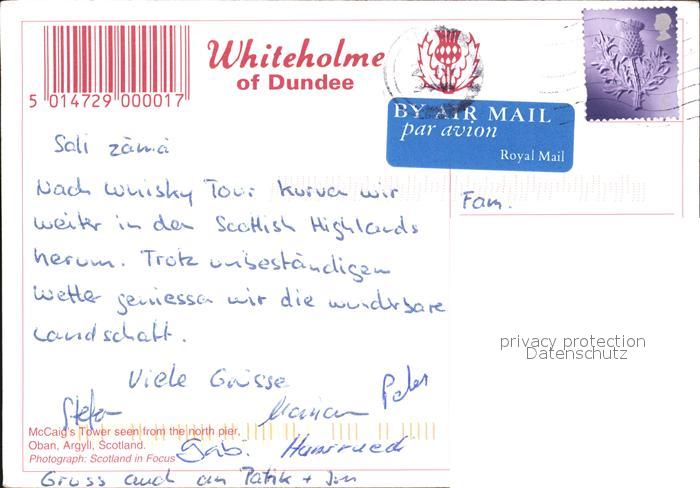 Whiteholme
of Dundee
5 014729 000017
BY AIR MAIL
par avion
Royal Mail
Sali zämä
Nach Whisky Tour kurva wir
weiter in den Scottish Highlands
herum. Trotz unbeständigem
Wetter geniessa wir die wunderbare
Landschaft.
Viele Grüsse
Stefan Marian Peter
Gabi Hansruedi
Gruss auch an Patrik +
Fam.
privacy protection
Datenschutz
McCaig's Tower seen from the north pier,
Oban, Argyll, Scotland.
Photograph: Scotland in Focus